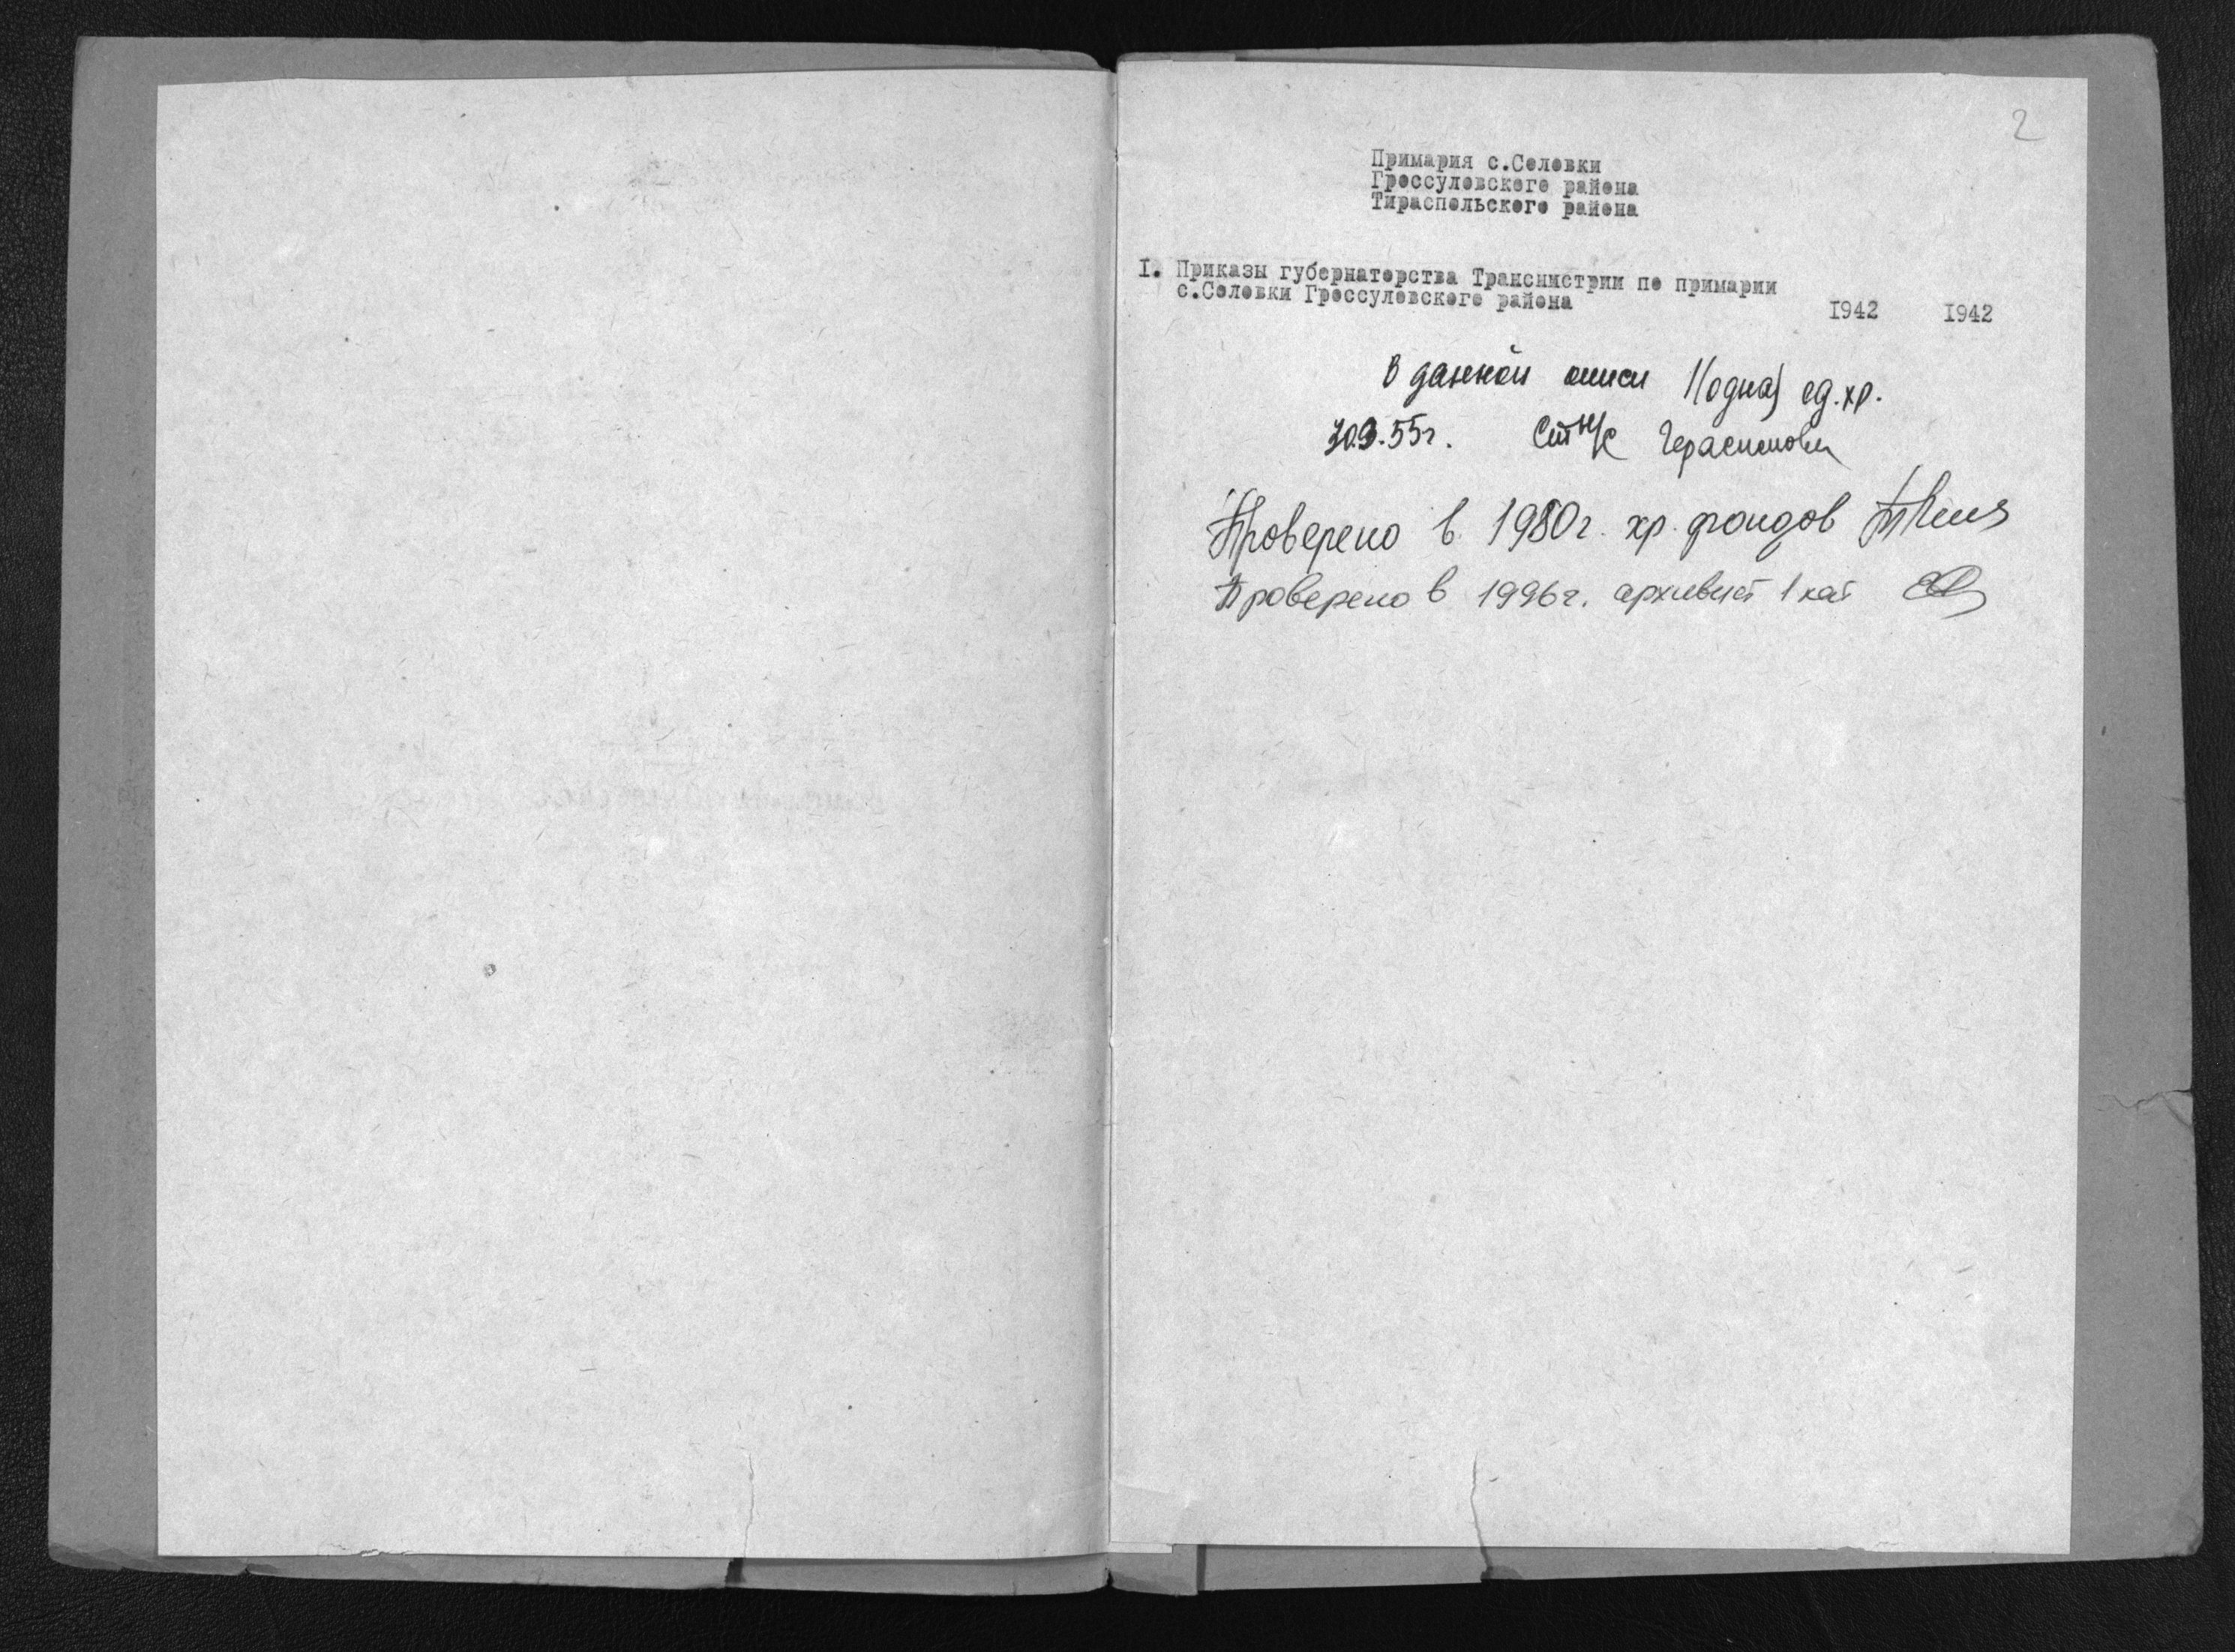 2
Примария с.Соловки
Гроссуловского района
Тираспольского района
I. Приказы губернаторства Транснистрии по примарии
с.Соловки Гроссуловского района
1942 1942
В данной описи 1(одна) ед.хр.
30.9.55г. Ст н/с Герасимова
Проверено в 1980г. хр. фондов
Проверено в 1996г. архивист 1 кат